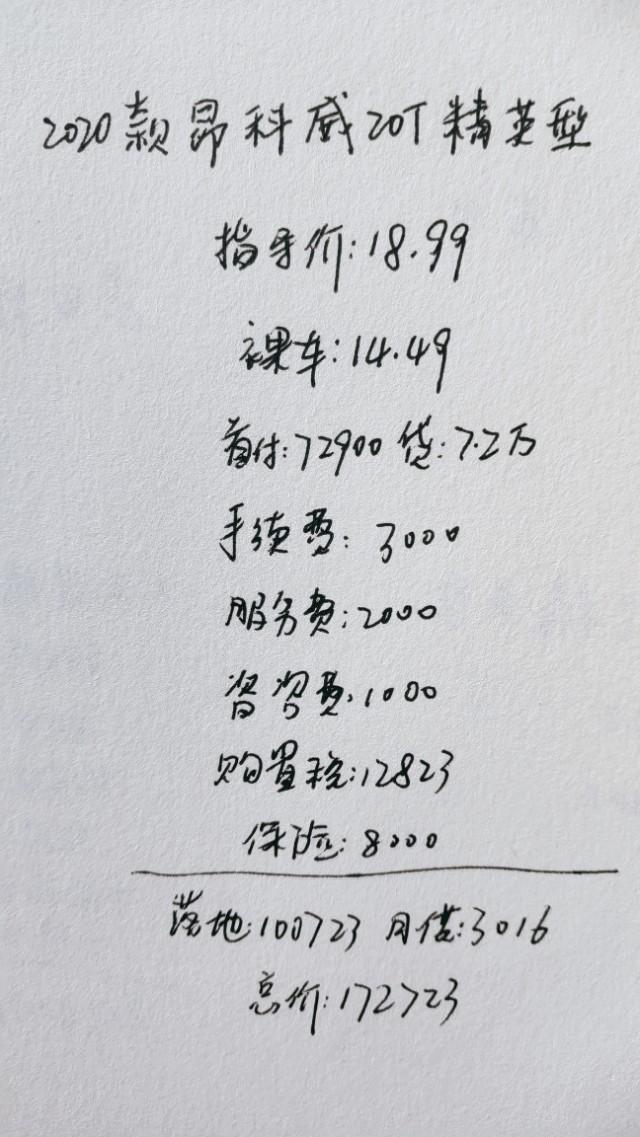 2020款昂科威20T精英型
指导价:18.99
裸车:14.49
首付:72900 贷:7.2万
手续费:3000
服务费:2000
费:1000
购置税:12823
保险:8000
落地:100723 月供:3016
总价:172723